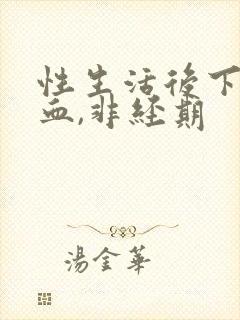 性生活後下
血,非經期
湯金華